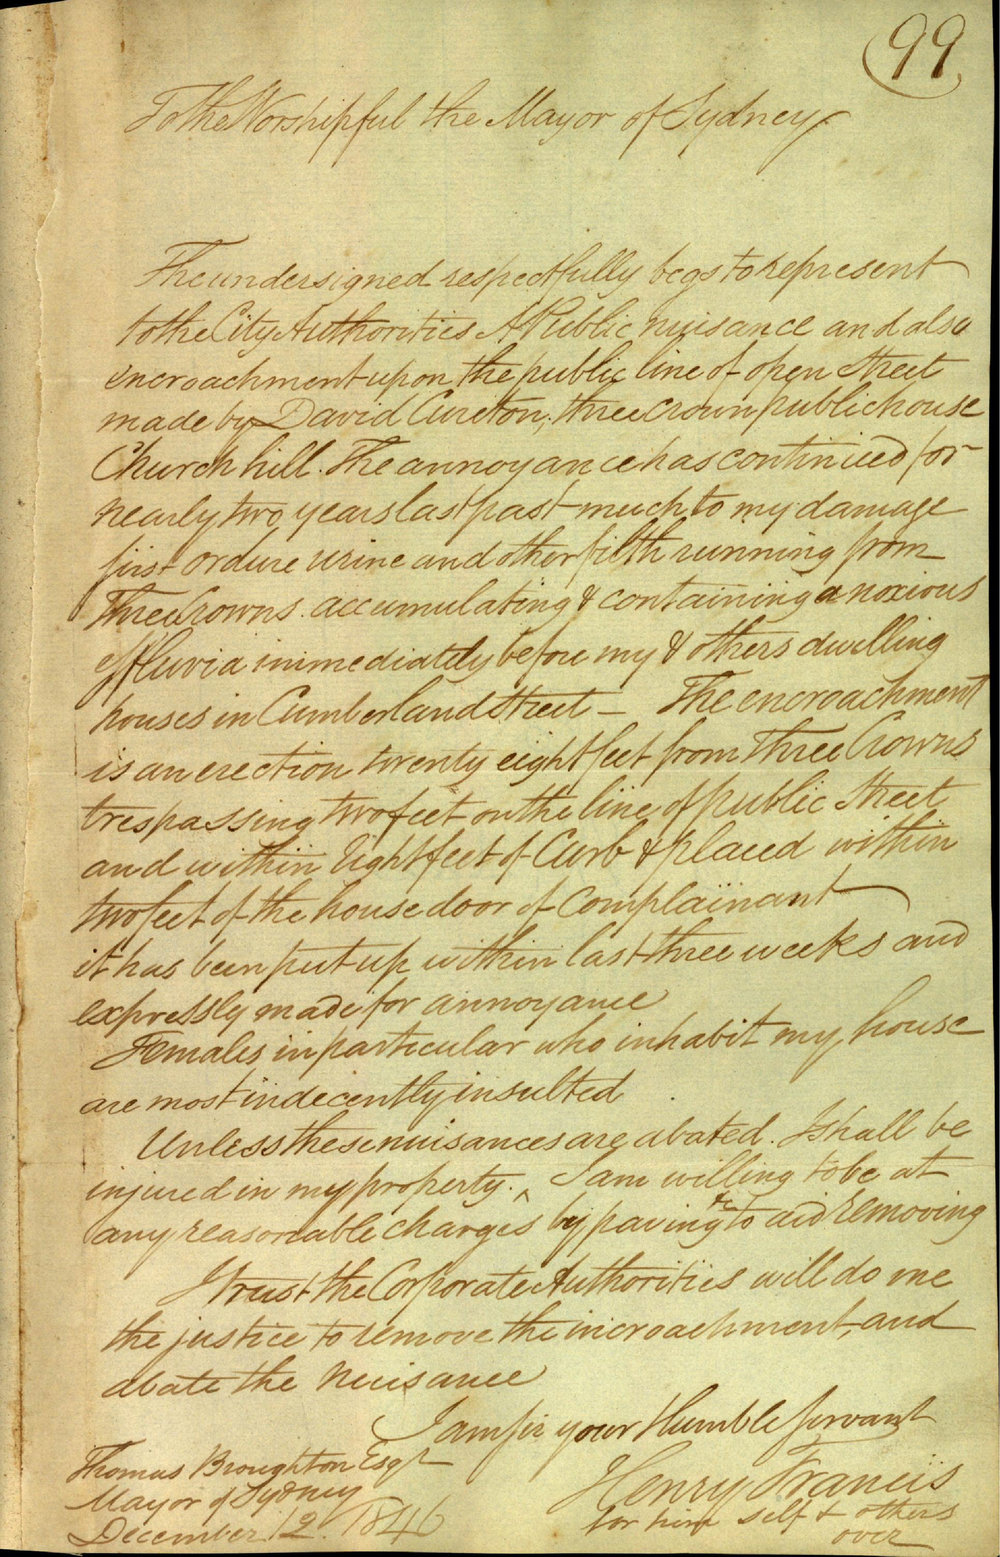 99
To the Worshipful the Mayor of Sydney
The undersigned respectfully begs to represent
to the City Authorities A Public nuisance and also
encroachment upon the public line of open Street
made by David Cureton, three crown public house
Church hill. The annoyance has continued for
nearly two years last past much to my damage
first ordure urine and other filth running from
Three Crowns. accumulating & containing a noxious
effluvia immediately before my & others dwelling
houses in Cumberland Street — The encroachment
is an erection twenty eight feet from Three Crowns
trespassing two feet on the line of public Street
and within Eight feet of Curb & placed within
two feet of the house door of Complainant
it has been put up within last three weeks and
expressly made for annoyance
Females in particular who inhabit my house
are most indecently insulted
Unless these nuisances are abated. I shall be
injured in my property. ^ I am willing to be at
any reasonable charges by paving &c to aid removing
I trust the Corporate Authorities will do me
the justice to remove the incroachment, and
abate the Nuisance
I am sir your Humble servant
Thomas Broughton Esqr
Henry Francis
Mayor of Sydney
for him self & others
December 12. 1846
over